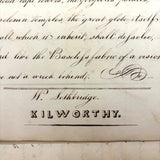 demn temples, the great globe itself,
which it inherit, shall dissolve,
like the Baseless fabric of a vision
not a wreck behind.
W. Lethbridge.
KILWORTHY.